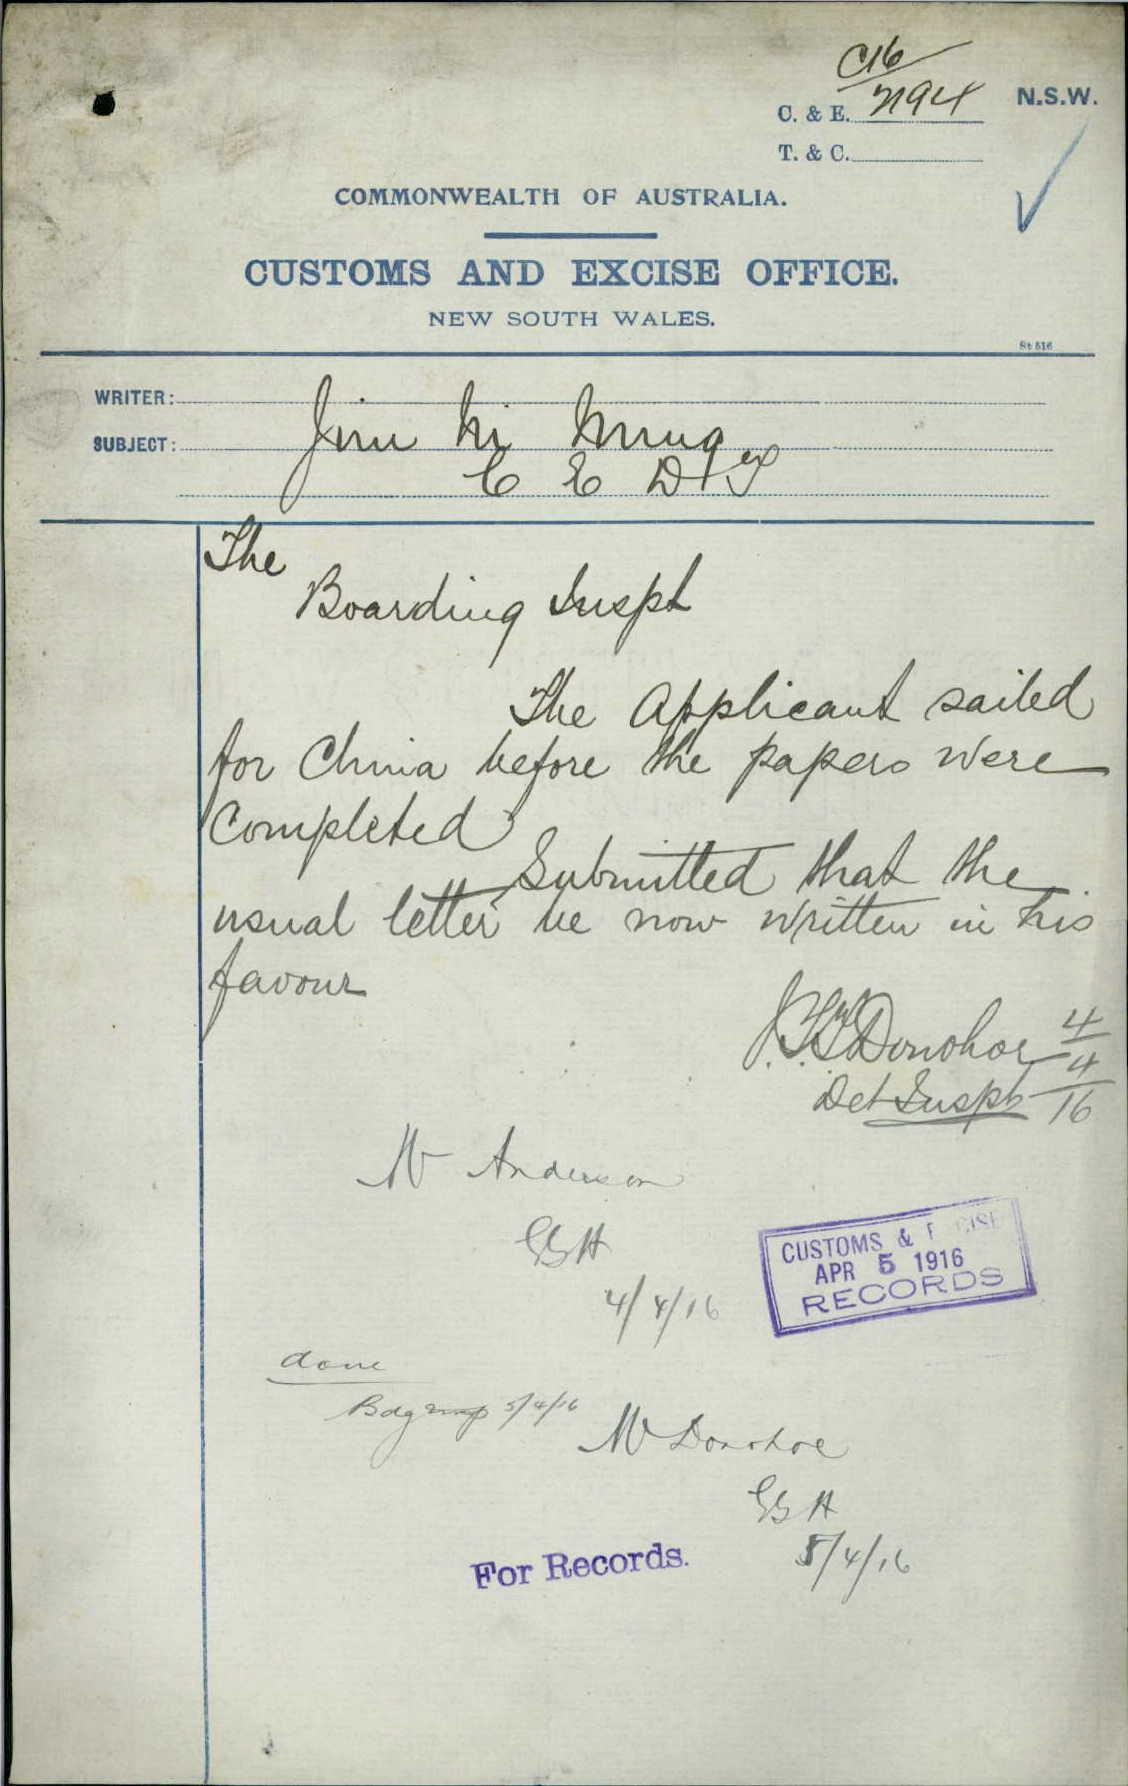 C16
C. & E. 2194 N.S.W.
T. & C.
COMMONWEALTH OF AUSTRALIA.
CUSTOMS AND EXCISE OFFICE.
NEW SOUTH WALES.
St 516
WRITER:
SUBJECT:
C E D T ex
The
Boarding Inspt
The Applicant sailed
for China before the papers were
Completed
Submitted that the
usual letter be now written in his
favour
Donohoe 4/4/16
Det Inspt
Mr Anderson
4/4/16
CUSTOMS & E CISE
APR 5 1916
RECORDS
done
Bdg Insp 5/4/16
Mr Donohoe
5/4/16
For Records.